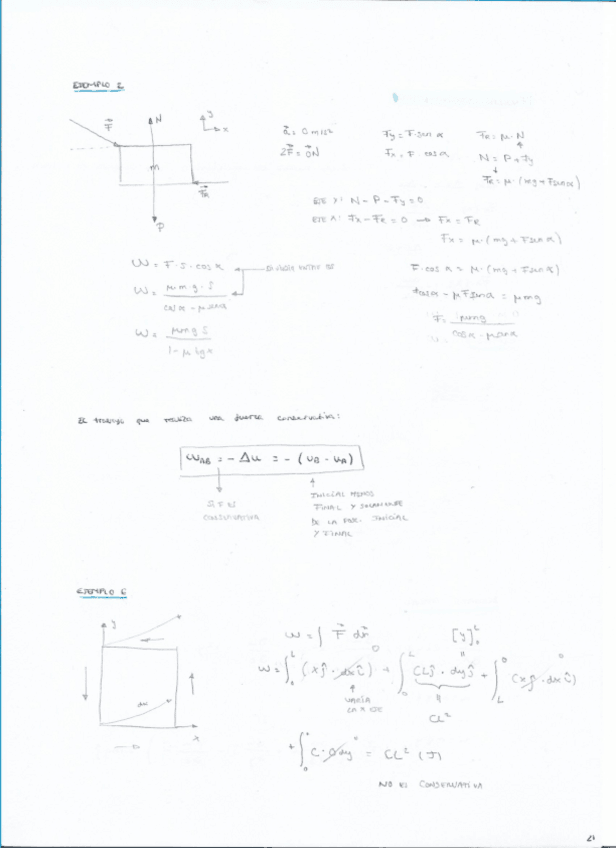 EJEMPLO 2
F⃗
N
y
x
m
F⃗R
P
a⃗ = 0 m/s²
ΣF⃗ = 0⃗N
Fy = F·sen α
Fx = F·cos α
FR = μ·N
N = P + Fy
FR = μ·(mg + F sen α)
EJE Y: N - P - Fy = 0
EJE X: Fx - FR = 0 → Fx = FR
Fx = μ·(mg + F sen α)
W = F·S·cos α
W = μ·m·g·S / cos α - μ sen α
W = μmgS / 1 - μ tg α
F·cos α = μ·(mg + F sen α)
Fcos α - μF sen α = μmg
F = μmg / cos α - μ sen α
El trabajo que realiza una fuerza conservativa:
WAB = - Δu = - (uB - uA)
SI F ES
CONSERVATIVA
INICIAL MENOS
FINAL Y SOLAMENTE
DE LA POS. INICIAL
Y FINAL
EJEMPLO 6
y
x
dr
W = ∫ F⃗ dr⃗
[y]₀ᴸ
W = ∫₀ᴸ (xĵ · dx î) + ∫₀ᴸ CLĵ · dyĵ + ∫ᴸ⁰ (xĵ · dx î)
0
VARÍA
CL²
+ ∫ C·0 dy = CL² (J)
NO ES CONSERVATIVA
21